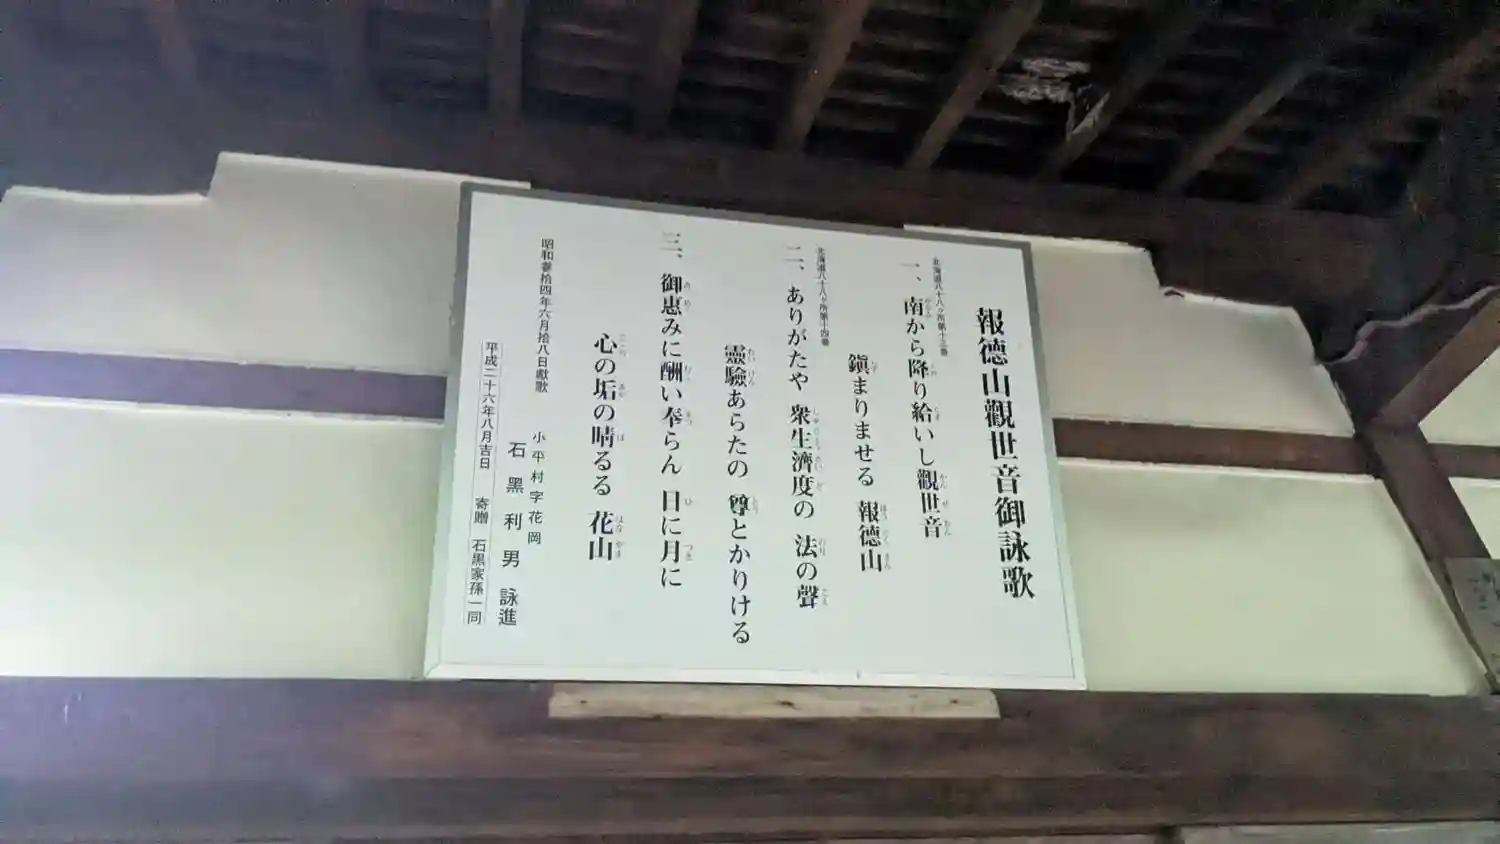 報徳山觀世音御詠歌
北海道八十八ヶ所第十三番
一、南から降り給いし觀世音
鎭まりませる 報徳山
北海道八十八ヶ所第十四番
二、ありがたや 衆生濟度の 法の聲
靈驗あらたの 尊とかりける
三、御恵みに酬い奉らん 日に月に
心の垢の晴るる 花山
昭和参拾四年六月拾八日献歌
小平村字花岡
石黒利男 詠進
平成二十六年八月吉日 寄贈 石黒家孫一同